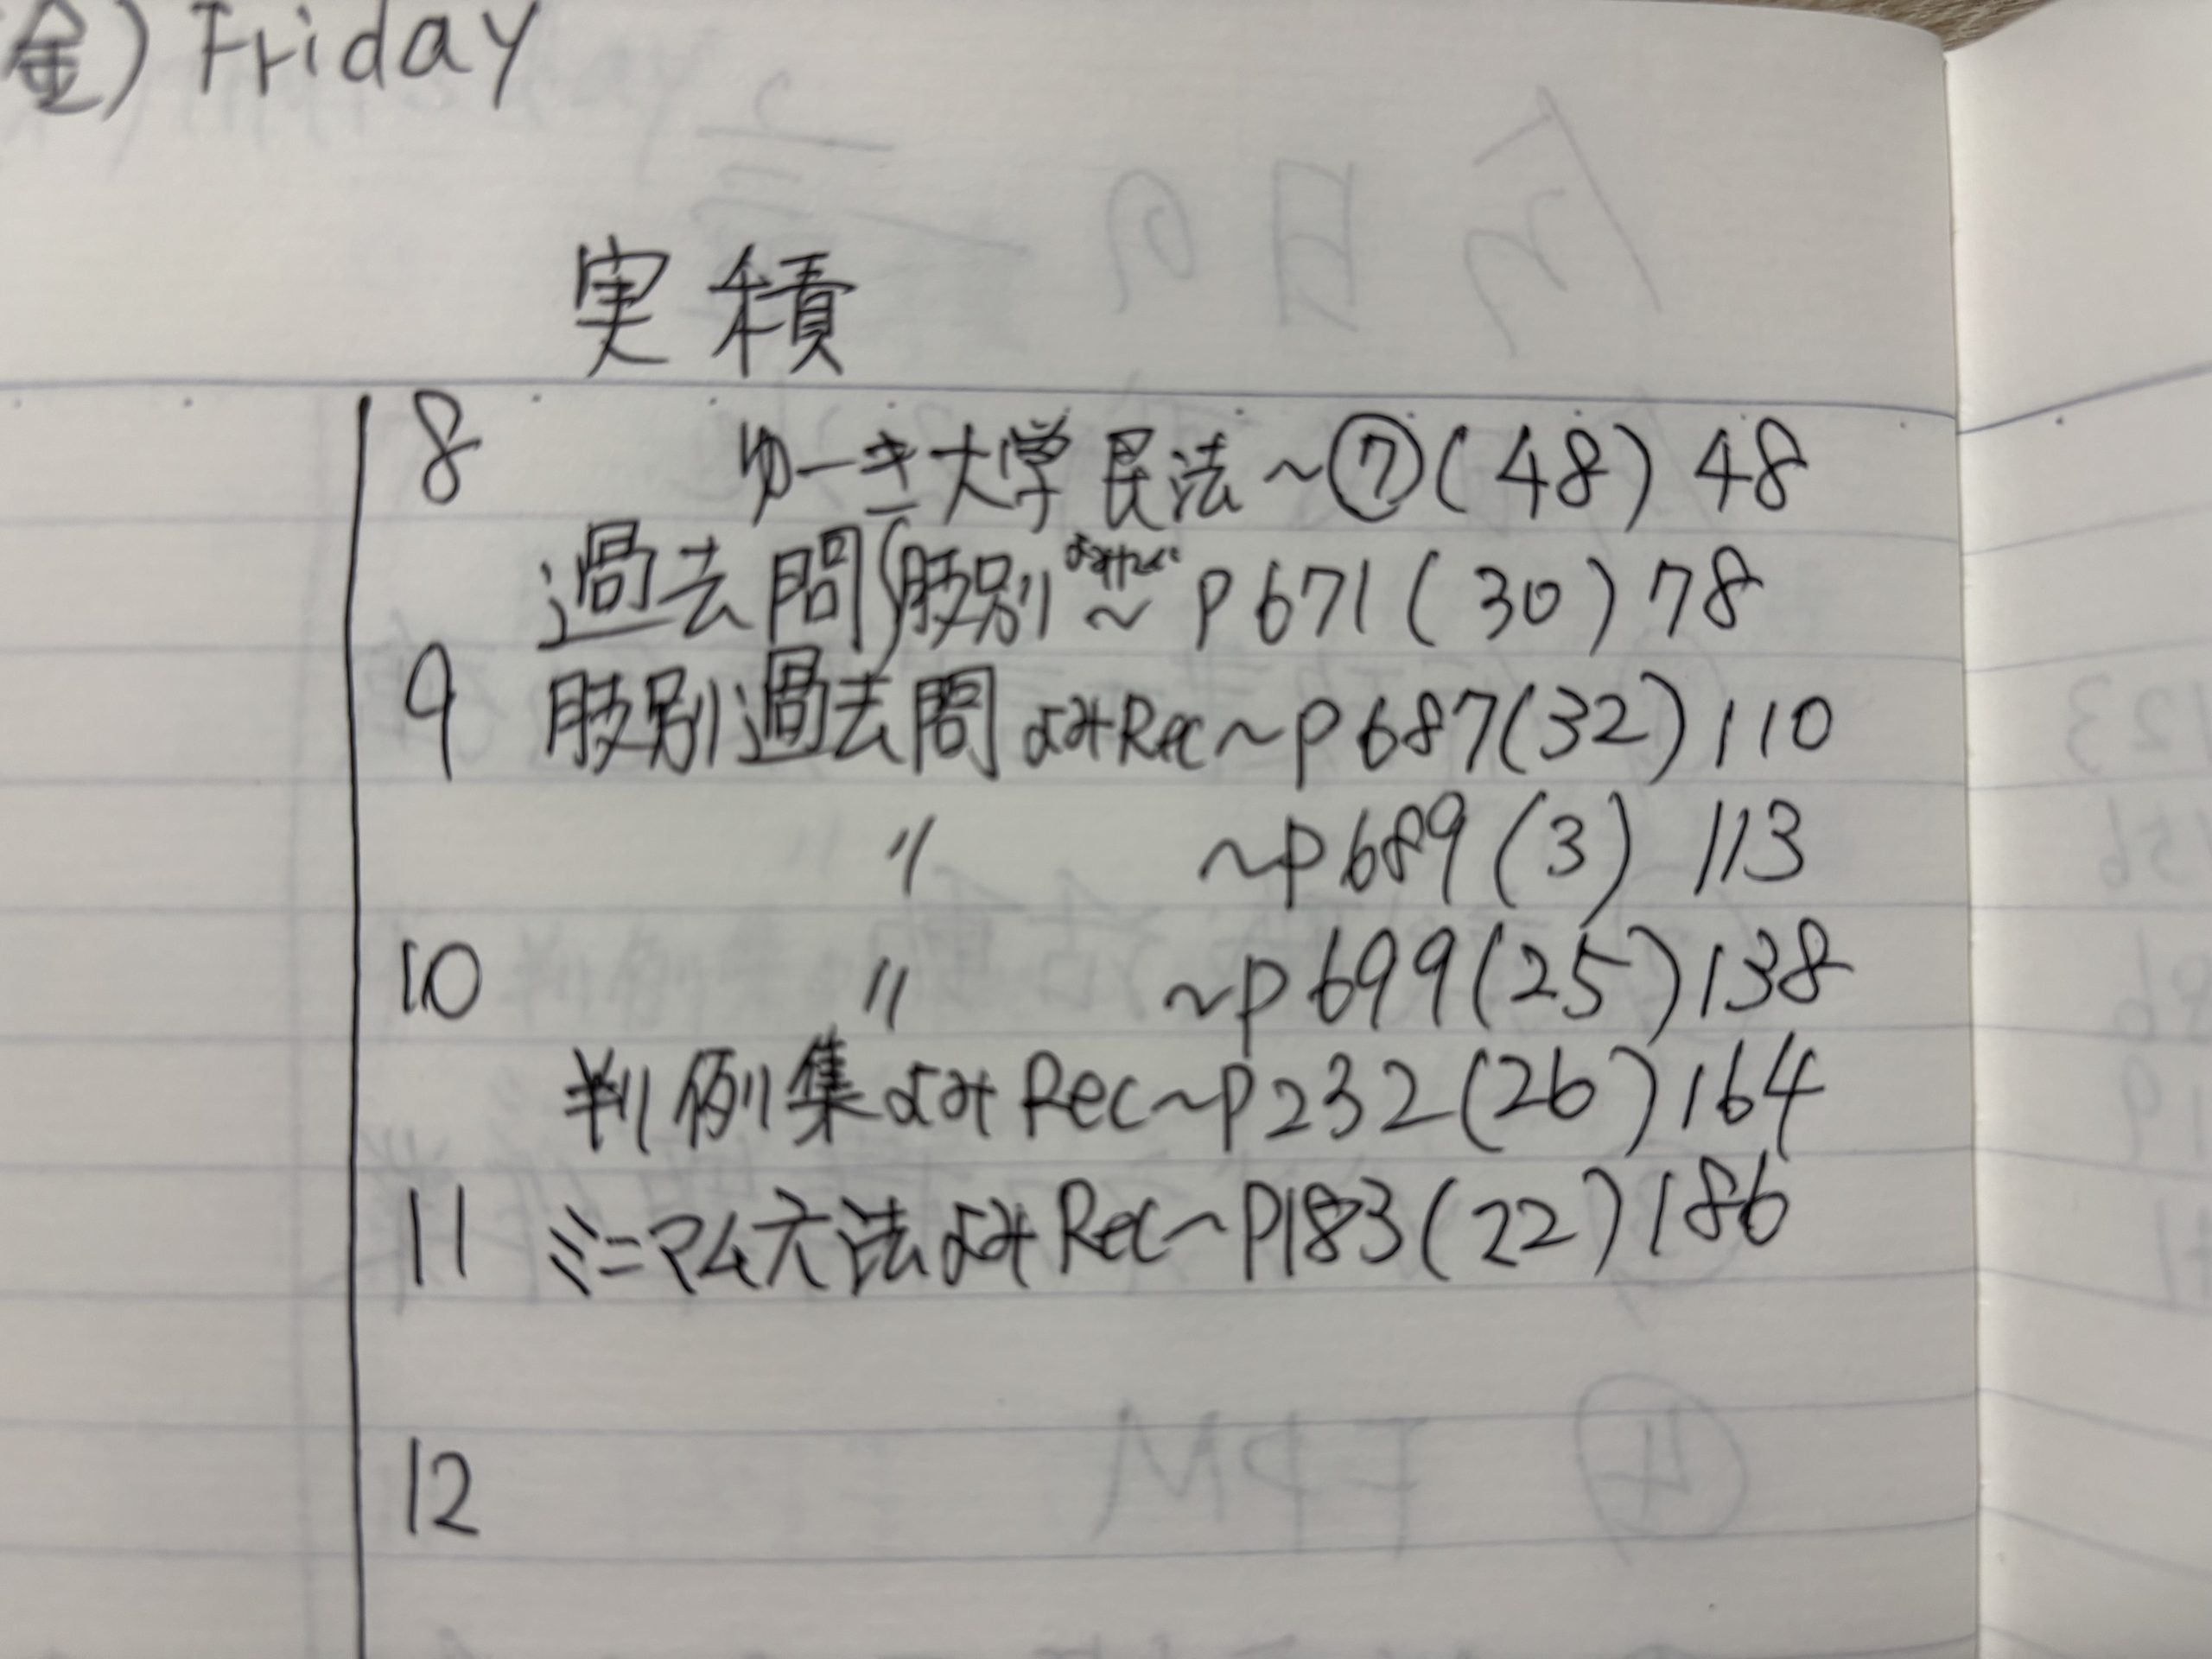 金) Friday
実積
8 ゆーき大学 民法 ~⑦(48) 48
過去問 肢別 ~ P671(30)78
9 肢別過去問 よみRec~P687(32)110
〃 ~P689(3) 113
10 〃 ~P699(25)138
判例集よみRec~P232(26)164
11 ミニマム六法よみRec~P183(22)186
12